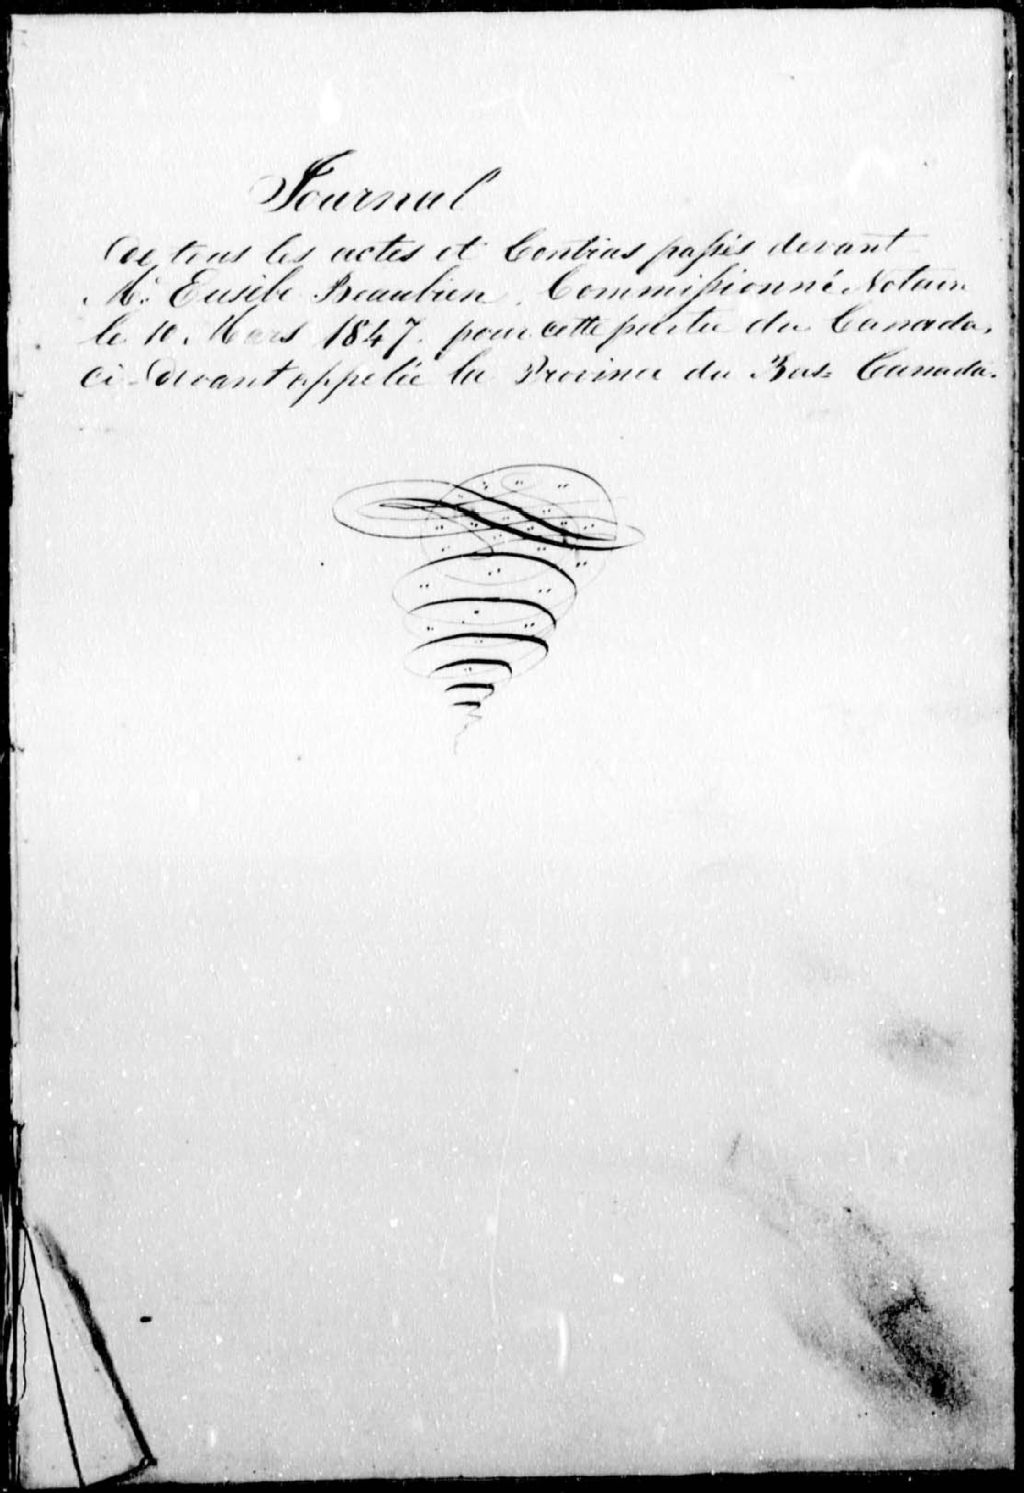 Journal
De tous les actes et Contras passés devant
Mr. Eusèbe Beaubien, Commissionné Notaire
le 10. Mars 1847. pour cette partie du Canada,
ci-devant appelée la Province du Bas-Canada.